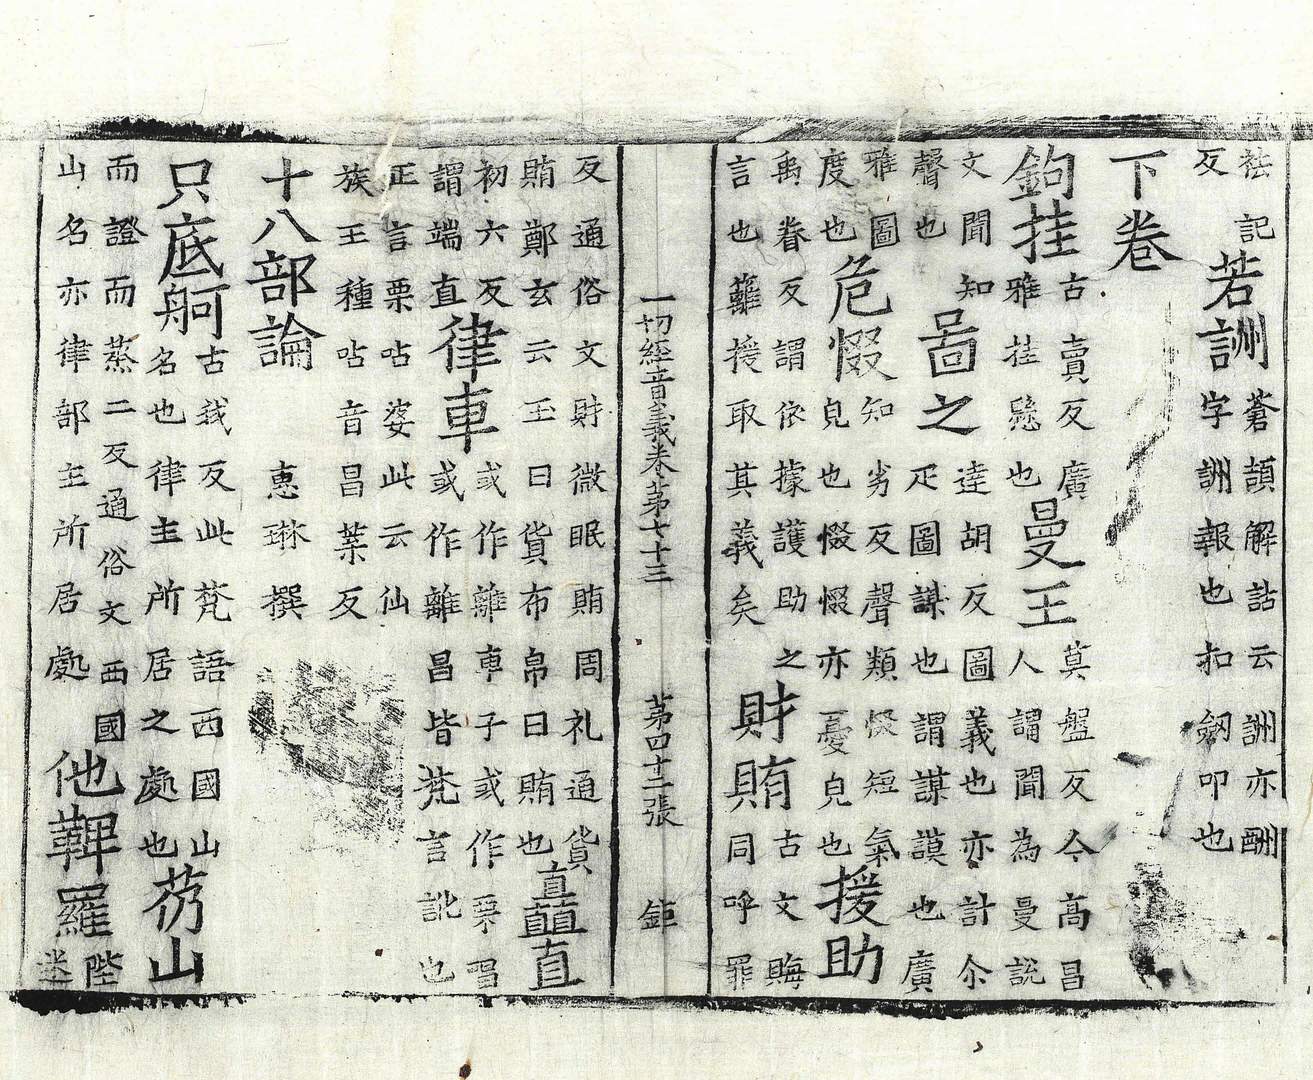 袪記
反
若詶
蒼頡解詁云詶亦酬
字詶報也扣劒叩也
下卷
鉤挂
古賣反廣
雅挂懸也
曼王
莫盤反今高昌
人謂聞為曼說
文聞知
聲也
啚之
達胡反圖義也亦計尒
疋圖謀也謂謀謨也廣
雅圖
度也
危惙
知劣反聲類惙短氣
皃也惙惙亦憂皃也
援助
禹眷反謂依據護助之
言也籬援取其義矣
財賄
古文晦
同呼罪
一切經音義卷第七十三 第四十二張 鉅
反通俗文財微眠賄周礼通貨
賄鄭玄云玉曰貨布帛曰賄也
矗直
初六反
謂端直
律車
或作離車子或作栗唱
或作離昌皆梵言訛也
正言栗呫婆此云仙
族王種呫音昌葉反
十八部論 惠琳撰
只底舸
古我反此梵語西國山
名也律主所居之處也
芿山
而證而蒸二反通俗文西國
山名亦律部主所居處
他鞞羅
陛
迷